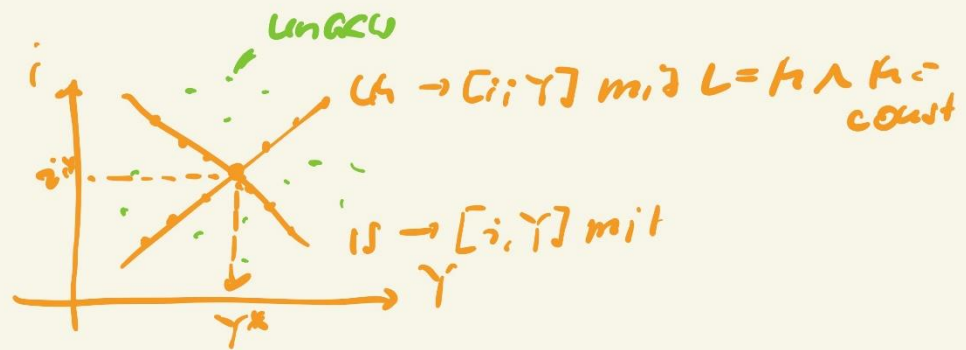 unGGW
i
LM → [i; Y] mit L = M ∧ M = const
i*
IS → [i, Y] mit
Y
Y*